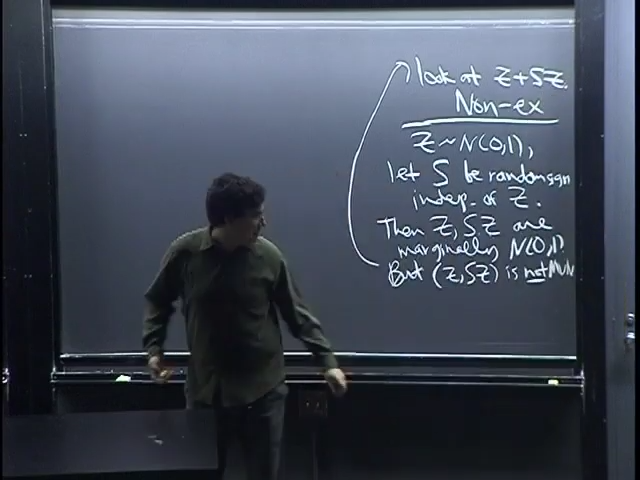 look at Z+SZ.
Non-ex
Z~N(0,1),
let S be random sgn
indep. of Z.
Then Z, SZ are
marginally N(0,1).
But (Z,SZ) is not MVN